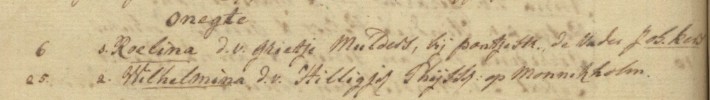 onegte
6 s. Roelina d.v. Grietje Mulders, bij
de Vader
25. a. Wilhelmina d.v. Hilligjes Thijssen op Monnikholm.